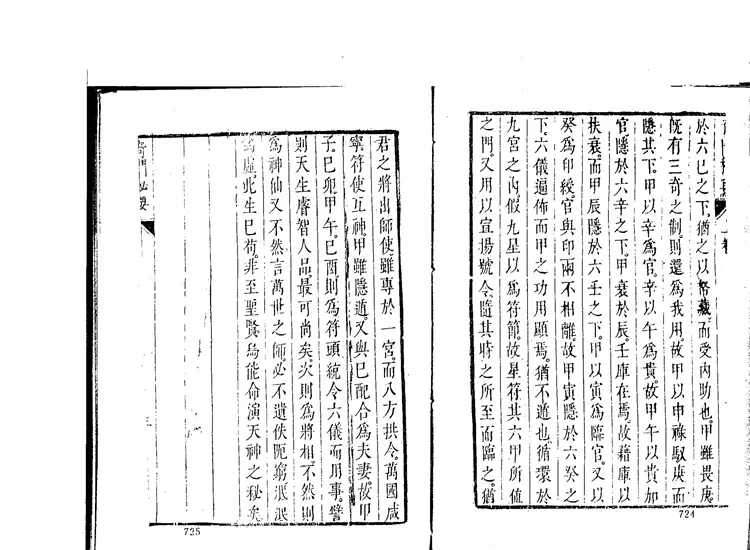 於六己之下。猶之以帑藏而受內助也。甲雖畏庚
既有三奇之制。則還爲我用。故甲以申祿馭庚而
隱其下。甲以辛爲官。辛以午爲貴。故甲午以貴如
官。隱於六辛之下。甲衰於辰。壬庫在焉。故藉庫以
扶衰。而甲辰隱於六壬之下。甲以寅爲臨官。又以
癸爲印綬。官與印兩不相離。故甲寅隱於六癸之
下。六儀遍佈而甲之功用顯焉。猶不遁也。循環於
九宮之內。假九星以爲符節。故星符其六甲所值
之門。又用以宣揚號令。隨其時之所至而臨之。猶
724
君之將出師使雖專於一宮。而八方拱令。萬國咸
寧。符使互神。甲雖隱遁。又與己配合爲夫妻。故甲
子。己卯。甲午。己酉。則爲符頭。統令六儀而用事。譬
則天生睿智人品。最可尚矣。次則爲將相。不然則
爲神仙。又不然言萬世之師。必不遺佚阨窮。泯泯
爲虛。此生已苟。非至聖賢。烏能命演天神之秘矣
奇門 必要
725